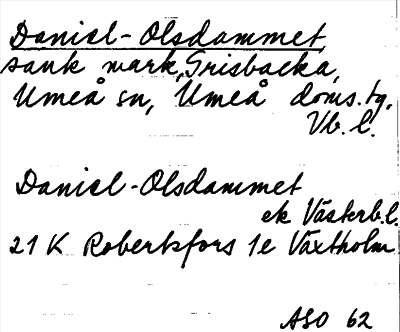 Daniel-Olsdammet,
sank mark, Grisbacka,
Umeå sn, Umeå doms.tg,
Vb. l.
Daniel-Olsdammet
ek Västerb.l.
21 K Robertsfors 1e Växtholm
ASO 62